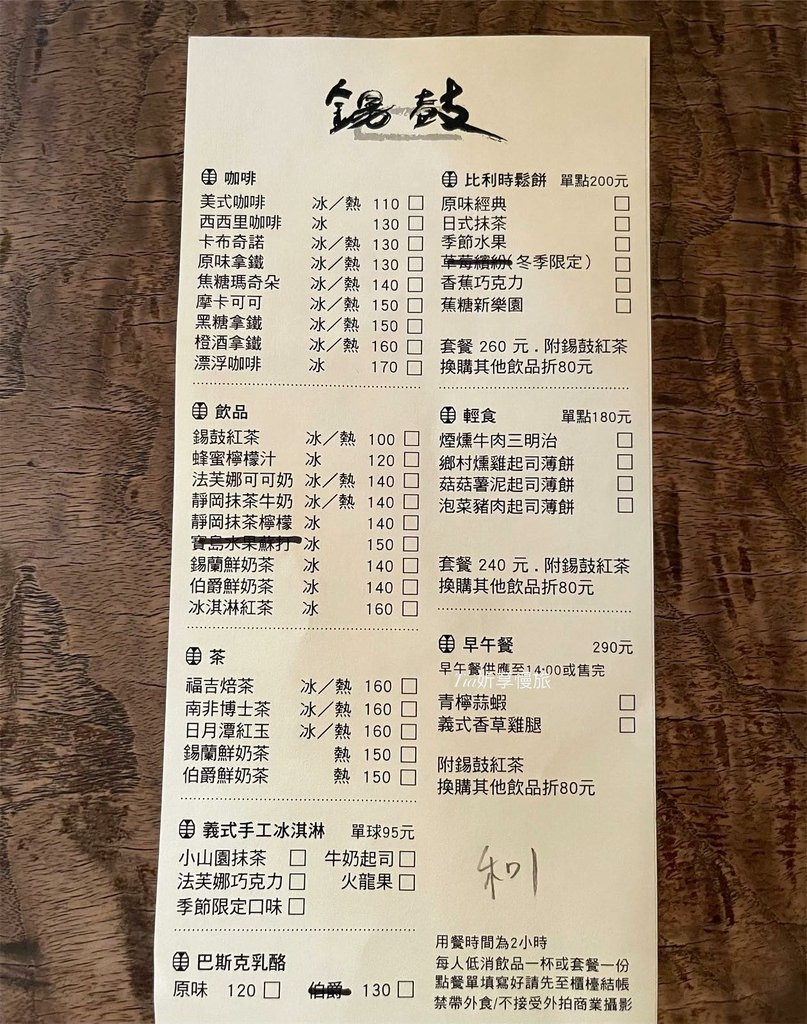 錫鼓
咖啡
美式咖啡 冰／熱 110 □
西西里咖啡 冰 130 □
卡布奇諾 冰／熱 130 □
原味拿鐵 冰／熱 130 □
焦糖瑪奇朵 冰／熱 140 □
摩卡可可 冰／熱 150 □
黑糖拿鐵 冰／熱 150 □
橙酒拿鐵 冰／熱 160 □
漂浮咖啡 冰 170 □
飲品
錫鼓紅茶 冰／熱 100 □
蜂蜜檸檬汁 冰 120 □
法芙娜可可奶 冰／熱 140 □
靜岡抹茶牛奶 冰／熱 140 □
靜岡抹茶檸檬 冰 140 □
寶島水果蘇打 冰 150 □
錫蘭鮮奶茶 冰 140 □
伯爵鮮奶茶 冰 140 □
冰淇淋紅茶 冰 160 □
茶
福吉焙茶 冰／熱 160 □
南非博士茶 冰／熱 160 □
日月潭紅玉 冰／熱 160 □
錫蘭鮮奶茶 熱 150 □
伯爵鮮奶茶 熱 150 □
義式手工冰淇淋 單球95元
小山園抹茶 □ 牛奶起司 □
法芙娜巧克力 □ 火龍果 □
季節限定口味 □
巴斯克乳酪
原味 120 □ 伯爵 130 □
比利時鬆餅 單點200元
原味經典 □
日式抹茶 □
季節水果 □
草莓繽紛(冬季限定) □
香蕉巧克力 □
蕉糖新樂園 □
套餐 260 元．附錫鼓紅茶
換購其他飲品折80元
輕食 單點180元
煙燻牛肉三明治 □
鄉村燻雞起司薄餅 □
菇菇薯泥起司薄餅 □
泡菜豬肉起司薄餅 □
套餐 240 元．附錫鼓紅茶
換購其他飲品折80元
早午餐 290元
早午餐供應至14:00或售完
妡享慢旅
青檸蒜蝦 □
義式香草雞腿 □
附錫鼓紅茶
換購其他飲品折80元
和1
用餐時間為2小時
每人低消飲品一杯或套餐一份
點餐單填寫好請先至櫃檯結帳
禁帶外食/不接受外拍商業攝影